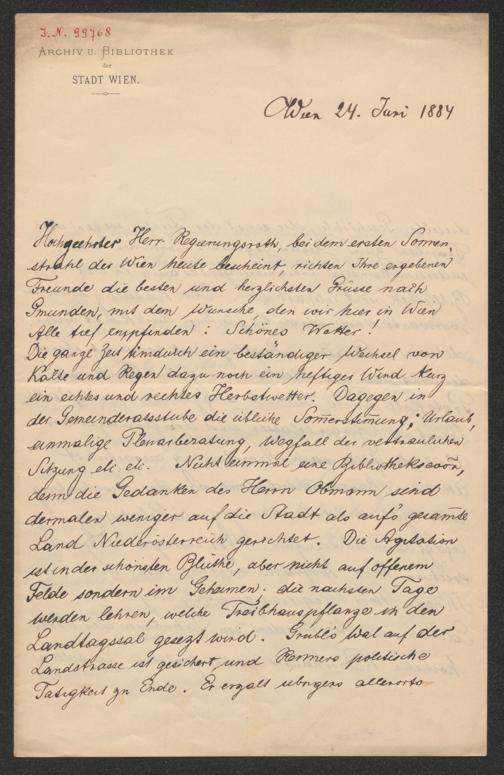 I.N. 99768
ARCHIV U. BIBLIOTHEK
der
STADT WIEN.
Wien 24. Juni 1884
Hochgeehrter Herr Regierungsrath, bei dem ersten Sonnen,
strahl der Wien heute bescheint, richten Ihre ergebenen
Freunde die besten und herzlichsten Grüsse nach
Gmunden, mit dem Wunsche, den wir hier in Wien
Alle tief empfinden: Schönes Wetter!
Die ganze Zeit hindurch ein beständiger Wechsel von
Kälte und Regen dazu noch ein heftiger Wind kurz
ein echtes und rechtes Herbstwetter. Dagegen in
der Gemeinderatsstube die übliche Somerstimung; Urlaub,
einmalige Plenarberatung, Wegfall der vertraulichen
Sitzung etc. etc. Nicht einmal eine
denn die Gedanken des Herrn Obmann sind
dermalen weniger auf die Stadt als auf's gesamte
Land Niederösterreich gerichtet. Die Agitation
ist in der schönsten Blüthe, aber nicht auf offenem
Felde sondern im Geheimen; die nächsten Tage
werden lehren, welche Treibhauspflanze in den
Landtagssal gesezt wird. Wal auf der
Landstrasse ist gesichert und politische
Tätigkeit zu Ende. Er erzält übrigens allerorts